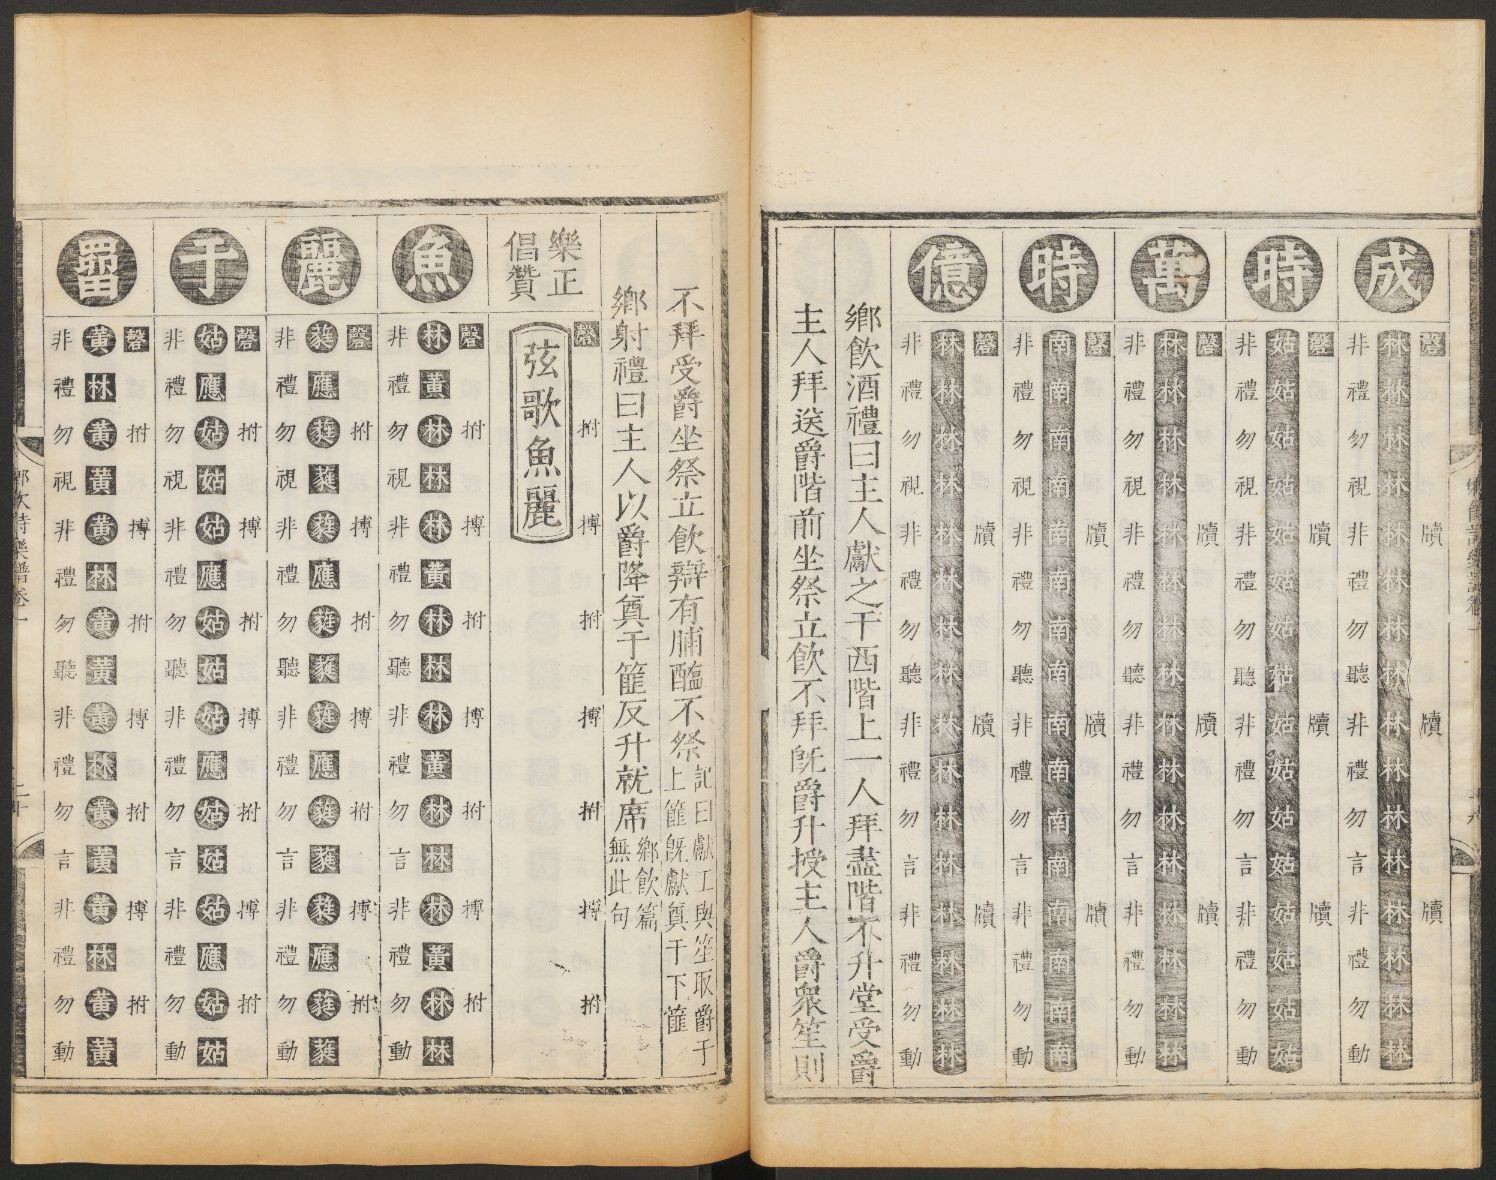 鄉飲詩樂譜卷一
成
磬牘牘牘
林林林林林林林林林林林林林林林林
非禮勿視非禮勿聽非禮勿言非禮勿動
時
磬牘牘牘
姑姑姑姑姑姑姑姑姑姑姑姑姑姑姑姑
非禮勿視非禮勿聽非禮勿言非禮勿動
萬
磬牘牘牘
林林林林林林林林林林林林林林林林
非禮勿視非禮勿聽非禮勿言非禮勿動
時
磬牘牘牘
南南南南南南南南南南南南南南南南
非禮勿視非禮勿聽非禮勿言非禮勿動
億
磬牘牘牘
林林林林林林林林林林林林林林林林
非禮勿視非禮勿聽非禮勿言非禮勿動
鄉飲酒禮曰主人獻之于西階上一人拜盡階不升堂受爵
主人拜送爵階前坐祭立飲不拜旣爵升授主人爵衆笙則
不拜受爵坐祭立飲辯有脯醢不祭
記曰獻工與笙取爵于
上篚旣獻奠于下篚
鄉射禮曰主人以爵降奠于篚反升就席
鄉飲篇
無此句
樂正
倡贊
磬拊搏拊搏拊搏拊
弦歌魚麗
魚
磬拊搏拊搏拊搏拊
林黃林林林黃林林林黃林林林黃林林
非禮勿視非禮勿聽非禮勿言非禮勿動
麗
磬拊搏拊搏拊搏拊
蕤應蕤蕤蕤應蕤蕤蕤應蕤蕤蕤應蕤蕤
非禮勿視非禮勿聽非禮勿言非禮勿動
于
磬拊搏拊搏拊搏拊
姑應姑姑姑應姑姑姑應姑姑姑應姑姑
非禮勿視非禮勿聽非禮勿言非禮勿動
罶
磬拊搏拊搏拊搏拊
黃林黃黃黃林黃黃黃林黃黃黃林黃黃
非禮勿視非禮勿聽非禮勿言非禮勿動
鄉飲詩樂譜卷一
二十